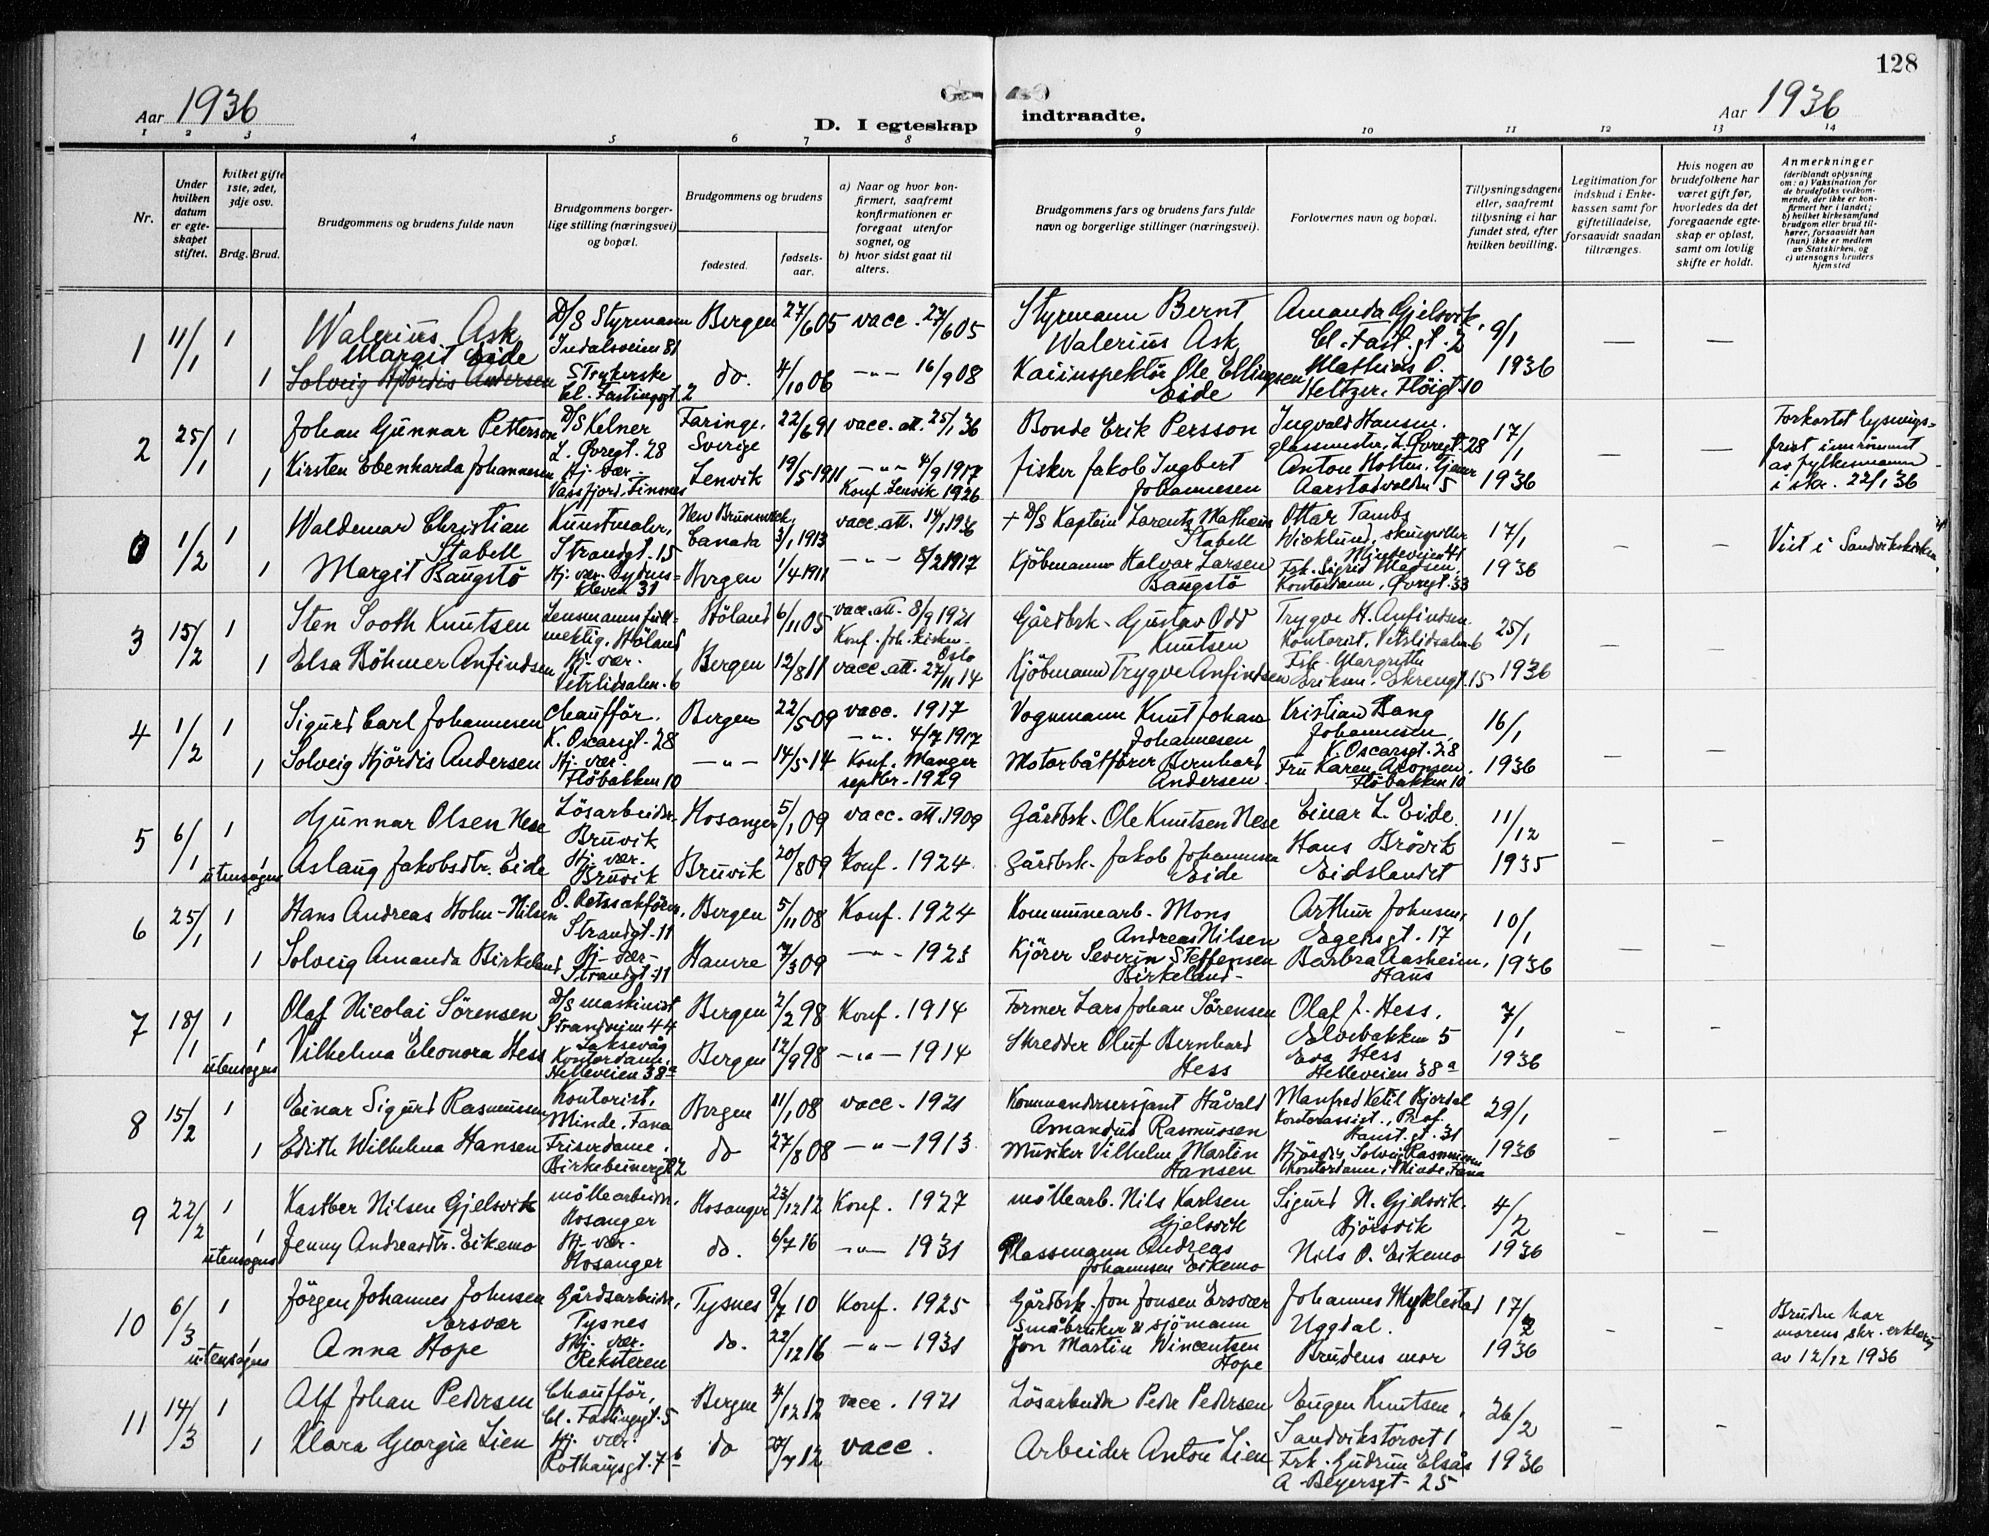 128
Aar 1936
D. I egteskap indtraadte.
Aar 1936
1 2 3 4 5 6 7 8 9 10 11 12 13 14
Nr.
Under hvilken datum er egteskapet stiftet.
Hvilket gifte 1ste, 2det, 3dje osv.
Brdg. Brud.
Brudgommens og brudens fulde navn
Brudgommens borgerlige stilling (næringsvei) og bopæl.
Brudgommens og brudens
fødested.
fødselsaar.
a) Naar og hvor konfirmert, saafremt konfirmationen er foregaat utenfor sognet, og
b) hvor sidst gaat til alters.
Brudgommens fars og brudens fars fulde navn og borgerlige stillinger (næringsvei).
Forlovernes navn og bopæl.
Tillysningsdagene eller, saafremt tillysning ei har fundet sted, efter hvilken bevilling.
Legitimation for indskud i Enkekassen samt for giftetilladelse, forsaavidt saadan tiltrænges.
Hvis nogen av brudefolkene har været gift før, hvorledes da det foregaaende egteskap er opløst, samt om lovlig skifte er holdt.
Anmerkninger (deriblandt oplysning om: a) Vaksination for de brudefolks vedkommende, der ikke er konfirmert her i landet; b) hvilket kirkesamfund brudgom eller brud tilhører, forsaavidt han (hun) ikke er medlem av Statskirken, og c) utensogns bruders hjemsted
1 11/1 1 Walerius Ask D/S Styrmann Indalsveien 81 Bergen 27/6 05 vacc. 27/6 05 Styrmann Bernt Walerius Ask Amanda Gjelsvik, Cl. Fast. gt. 2 9/1 1936 — —
1 Margit Eide Solveig Hjördis Andersen Strykerske Cl. Fastingsgt. 2 do. 4/10 06 —"— 16/9 08 Kaiinspektör Ole Ellingsen Eide Mathias O. Heltzer, Flöigt. 10
2 25/1 1 Johan Gunnar Petterson D/S Kelner L. Øvregt. 28 Faringe, Sverige 22/6 91 vacc. att. 25/1 36 Bonde Erik Persson Ingvald Hansen, glasmester, L. Øvregt. 28 17/1 1936 - - Forkortet lysningsfrist innrömmet av fylkesmann i skr. 22/1 36
1 Kirsten Ebenharda Johannesen Hj. vær. Vassfjord, Finsnes Lenvik 19/5 1911 —"— 4/9 1917 Konf. Lenvik 1926 fisker Jakob Ingbert Johannesen Anton Holten, Aarstadvolden 5
0 1/2 1 Waldemar Christian Stabell Kunstmaler, Strandgt. 15 New Brunswick, Canada 3/1 1913 vacc. att. 14/1 1936 + D/S Kaptein Larentz Mathæus Stabell Ottar Tambs Wicklund, skuespiller Mindeveien 41 17/1 1936 - - Viet i Sandvikskirken
1 Margit Baugstö Hj. vær. Bergen 1/4 1911 —"— 8/2 1917 Kjöbmann Halvar Larsen Baugstö Frk. Sigrid Madsen, Kontordame, Øvregt. 33
3 15/2 1 Sten Sooth Knutsen Lensmannsfullmektig, Höland Höland 6/11 05 vacc. att. 8/9 1921 Konf. Joh. kirken Oslo Gårdbrk. Gustav Odd Knutsen Trygve H. Anfindsen Kontorist, Vetrlidsalm. 6 25/1 1936
1 Elsa Böhmer Anfindsen Hj. vær. Vetrlidsalm. 6 Bergen 12/8 11 vacc. att. 27/11 14 Kjöbmann Trygve Anfindsen Frk. Margrethe Eriksen, Ekrengt. 15
4 1/2 1 Sigurd Carl Johannesen Chaufför. K. Oscarsgt. 28 Bergen 22/5 09 vacc. 1917 Vognmann Knut Johan Johannesen Kristian Bang Johannesen, K. Oscarsgt. 28 16/1 1936 - -
1 Solveig Hjördis Andersen Hj. vær. Flöbakken 10 —"— 14/5 14 —"— 4/7 1917 Konf. Manger septbr. 1929 Motorbåtförer Bernhard Andersen Fru Karen Aronsen. Flöbakken 10
5 6/1 1 Gunnar Olsen Nese Lösarbeider Bruvik Hosanger 5/1 09 vacc. att. 1909 Gårdbrk. Ole Knutsen Nese Einar L. Eide. 11/12 1935 - -
utensogns 1 Aslaug Jakobsdtr. Eide Hj. vær. Bruvik Bruvik 20/8 09 Konf. 1924 Gårdbrk. Jakob Johannesen Eide Hans Brövik Eidslandet
6 25/1 1 Hans Andreas Holm-Nilsen O. Retssakförer, Strandgt. 11 Bergen 5/11 08 Konf. 1924 Kommunearb. Mons Andreas Nilsen Arthur Johnsen, Egensgt. 17 10/1 1936 - -
1 Solveig Amanda Birkeland Hj. vær. Strandgt. 11 Hamre 7/3 09 —"— 1923 Kjörer Severin Steffensen Birkeland Barbra Aasheim, Haus
7 18/1 1 Olaf Nicolai Sörensen D/S maskinist Strandveien 44 Laksevåg Bergen 2/2 98 Konf. 1914 Former Lars Johan Sörensen Olaf J. Hess, Elvebakken 5 7/1 1936 - -
utensogns 1 Vilhelma Eleonora Hess Kontordame, Helleveien 38a Bergen 12/9 98 —"— 1914 Skredder Oluf Bernhard Hess Eva Hess Helleveien 38a
8 15/2 1 Einar Sigurd Rasmussen Kontorist, Minde, Fana Bergen 11/1 08 vacc. 1921 Kommandersersjant Håvald Amandus Rasmussen Manfred Ketil Gjerdal Kontorassist., Prof. Hanst. gt. 31 29/1 1936 - -
1 Edith Wilhelma Hansen Friserdame, Birkebeinergt. 2 do 27/8 08 —"— 1913 Musiker Vilhelm Martin Hansen Hjördis Solveig Rasmussen Kontordame, Minde, Fana
9 22/2 1 Kastber Nilsen Gjelsvik möllearbeider, Hosanger Hosanger 23/12 12 Konf. 1927 möllearb. Nils Karlsen Gjelsvik Sigurd N. Gjelsvik. Bjørsvik 4/2 1936 - -
utensogns 1 Jenny Andreasdtr. Eikemo Hj. vær. Hosanger do. 6/7 16 —"— 1931 Plassmann Andreas Johannesen Eikemo Nils O. Eikemo
10 6/3 1 Jörgen Johannes Johnsen Ersvær Gårdsarbeider, Tysnes Tysnes 9/7 10 Konf. 1925 Gårdbrk. Jon Jonsen Ersvær Johannes Myklestad Uggdal. 17/2 1936 - - Bruden har morens skr. erklæring av 12/12 1936
utensogns 1 Anna Hope Hj. vær. Reksteren do. 22/12 16 —"— 1931 Småbruker & sjömann Jon Martin Wincentsen Hope Brudens mor
11 14/3 1 Alf Johan Pedersen Chaufför, Cl. Fastingsgt. 5 Bergen 4/12 12 vacc. 1921 Lösarbeider Peder Pedersen Eugen Knutsen, Sandvikstorvet 1 26/2 1936 - -
1 Klara Georgia Lien Hj. vær. Rothaugsgt. 7b do 27/7 12 vacc. Arbeider Anton Lien Frk. Gudrun Elsås A. Beyersgt. 25